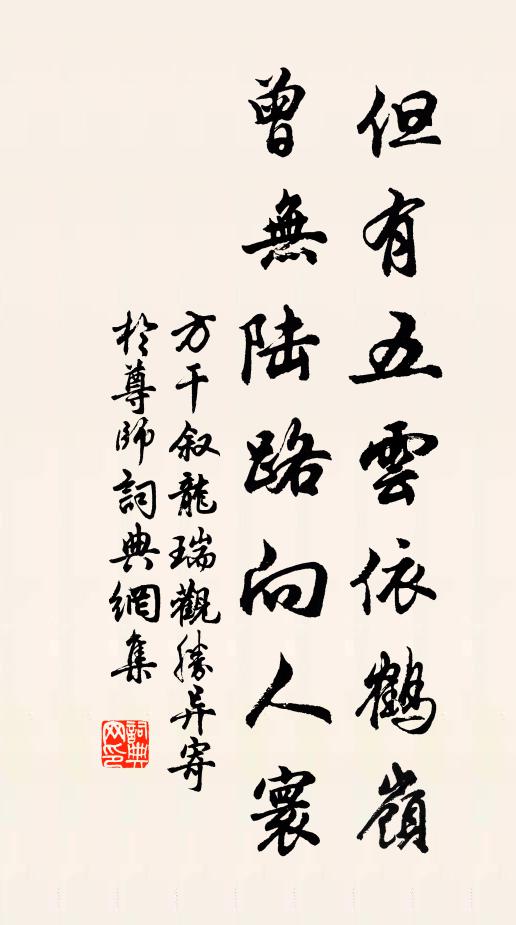 但有五雲依鶴嶺
曾無陸路向人寰
方干叙龍瑞觀勝异寄
於尊師詞典網集
詞典網印